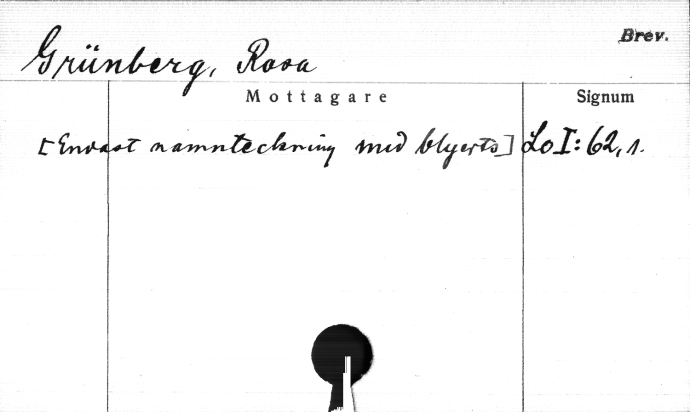 Brev.
Grünberg, Rosa
Mottagare Signum
[Endast namnteckning med blyerts] Lo I: 62, 1.